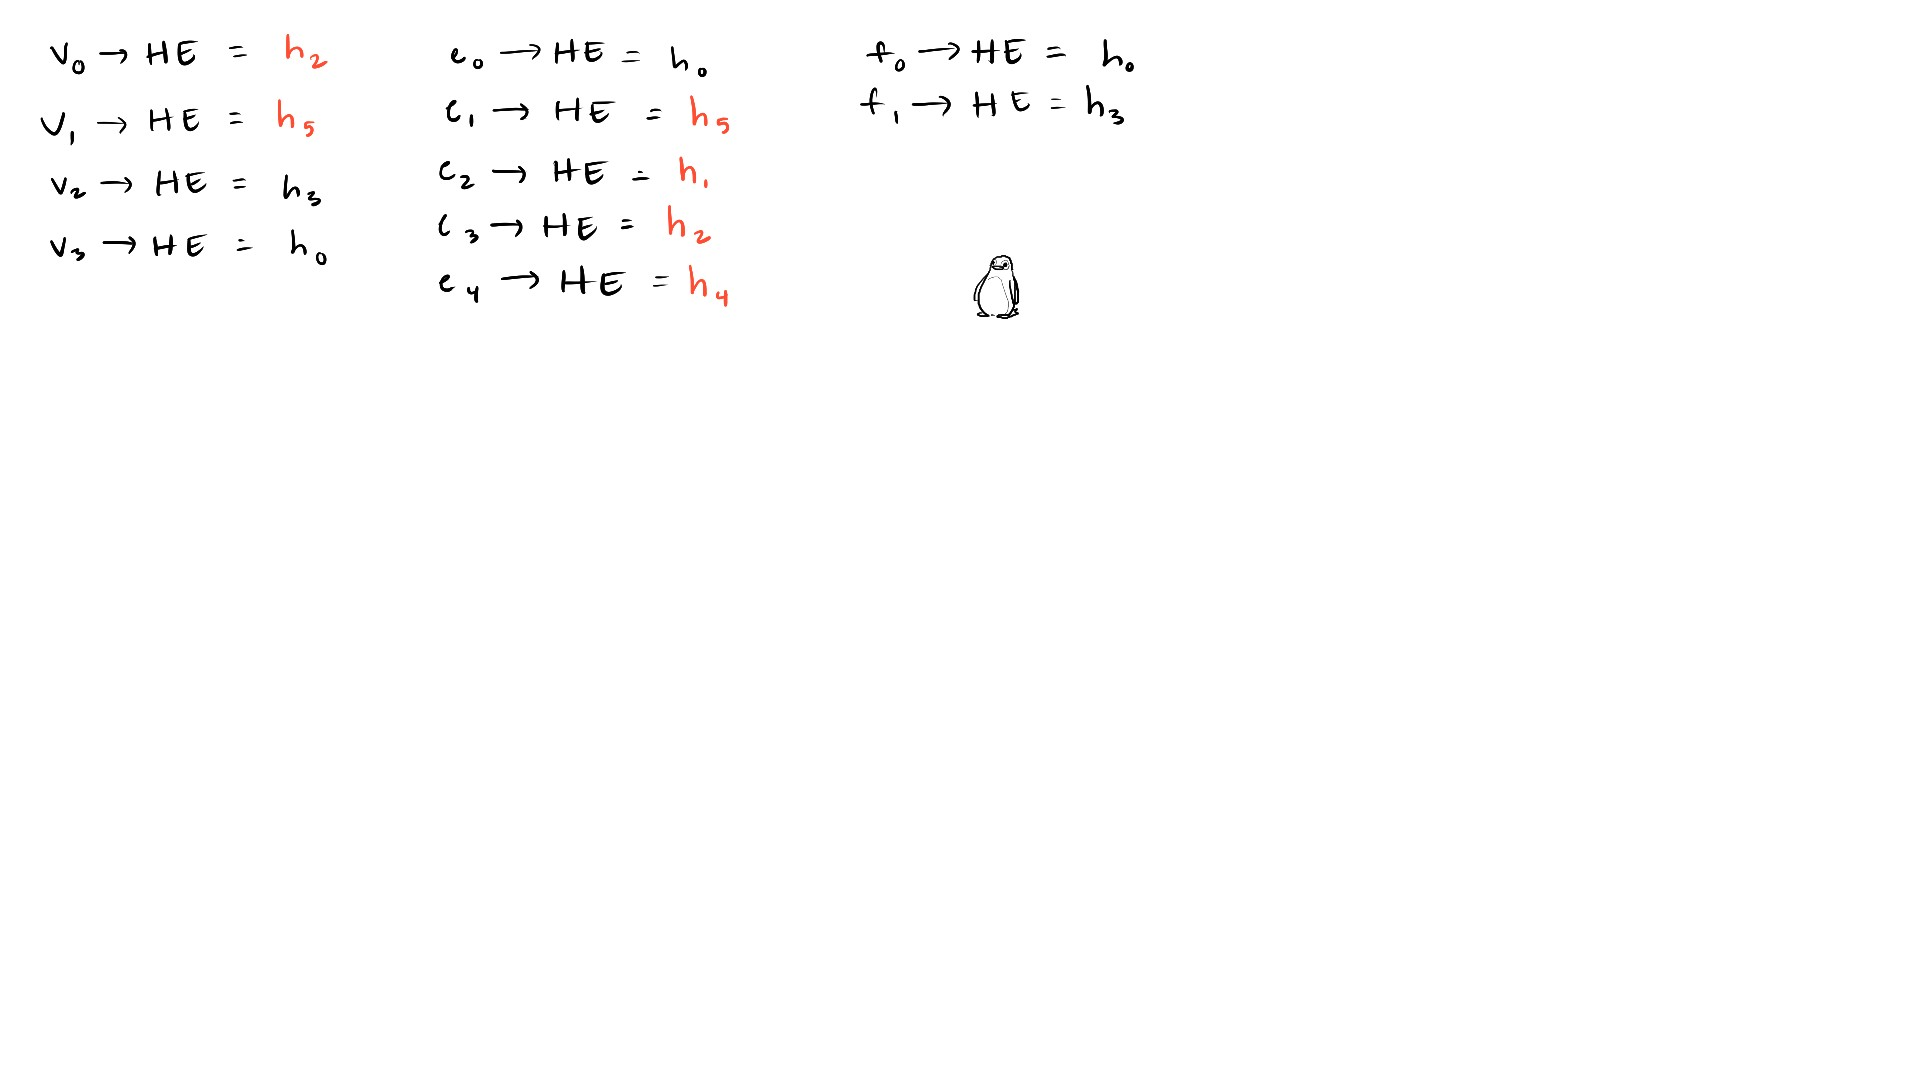 v₀ → HE = h₂
v₁ → HE = h₅
v₂ → HE = h₃
v₃ → HE = h₀
e₀ → HE = h₀
e₁ → HE = h₅
e₂ → HE = h₁
e₃ → HE = h₂
e₄ → HE = h₄
f₀ → HE = h₀
f₁ → HE = h₃